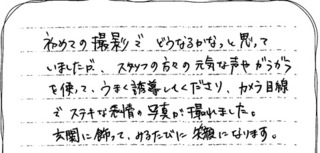 初めての撮影で どうなるかなっと思って
いましたが、スタッフの方々の元気な声やガラガラ
を使って、うまく誘導してくださり、カメラ目線
でステキな表情の写真が撮れました。
玄関に飾って、みるたびに笑顔になります。